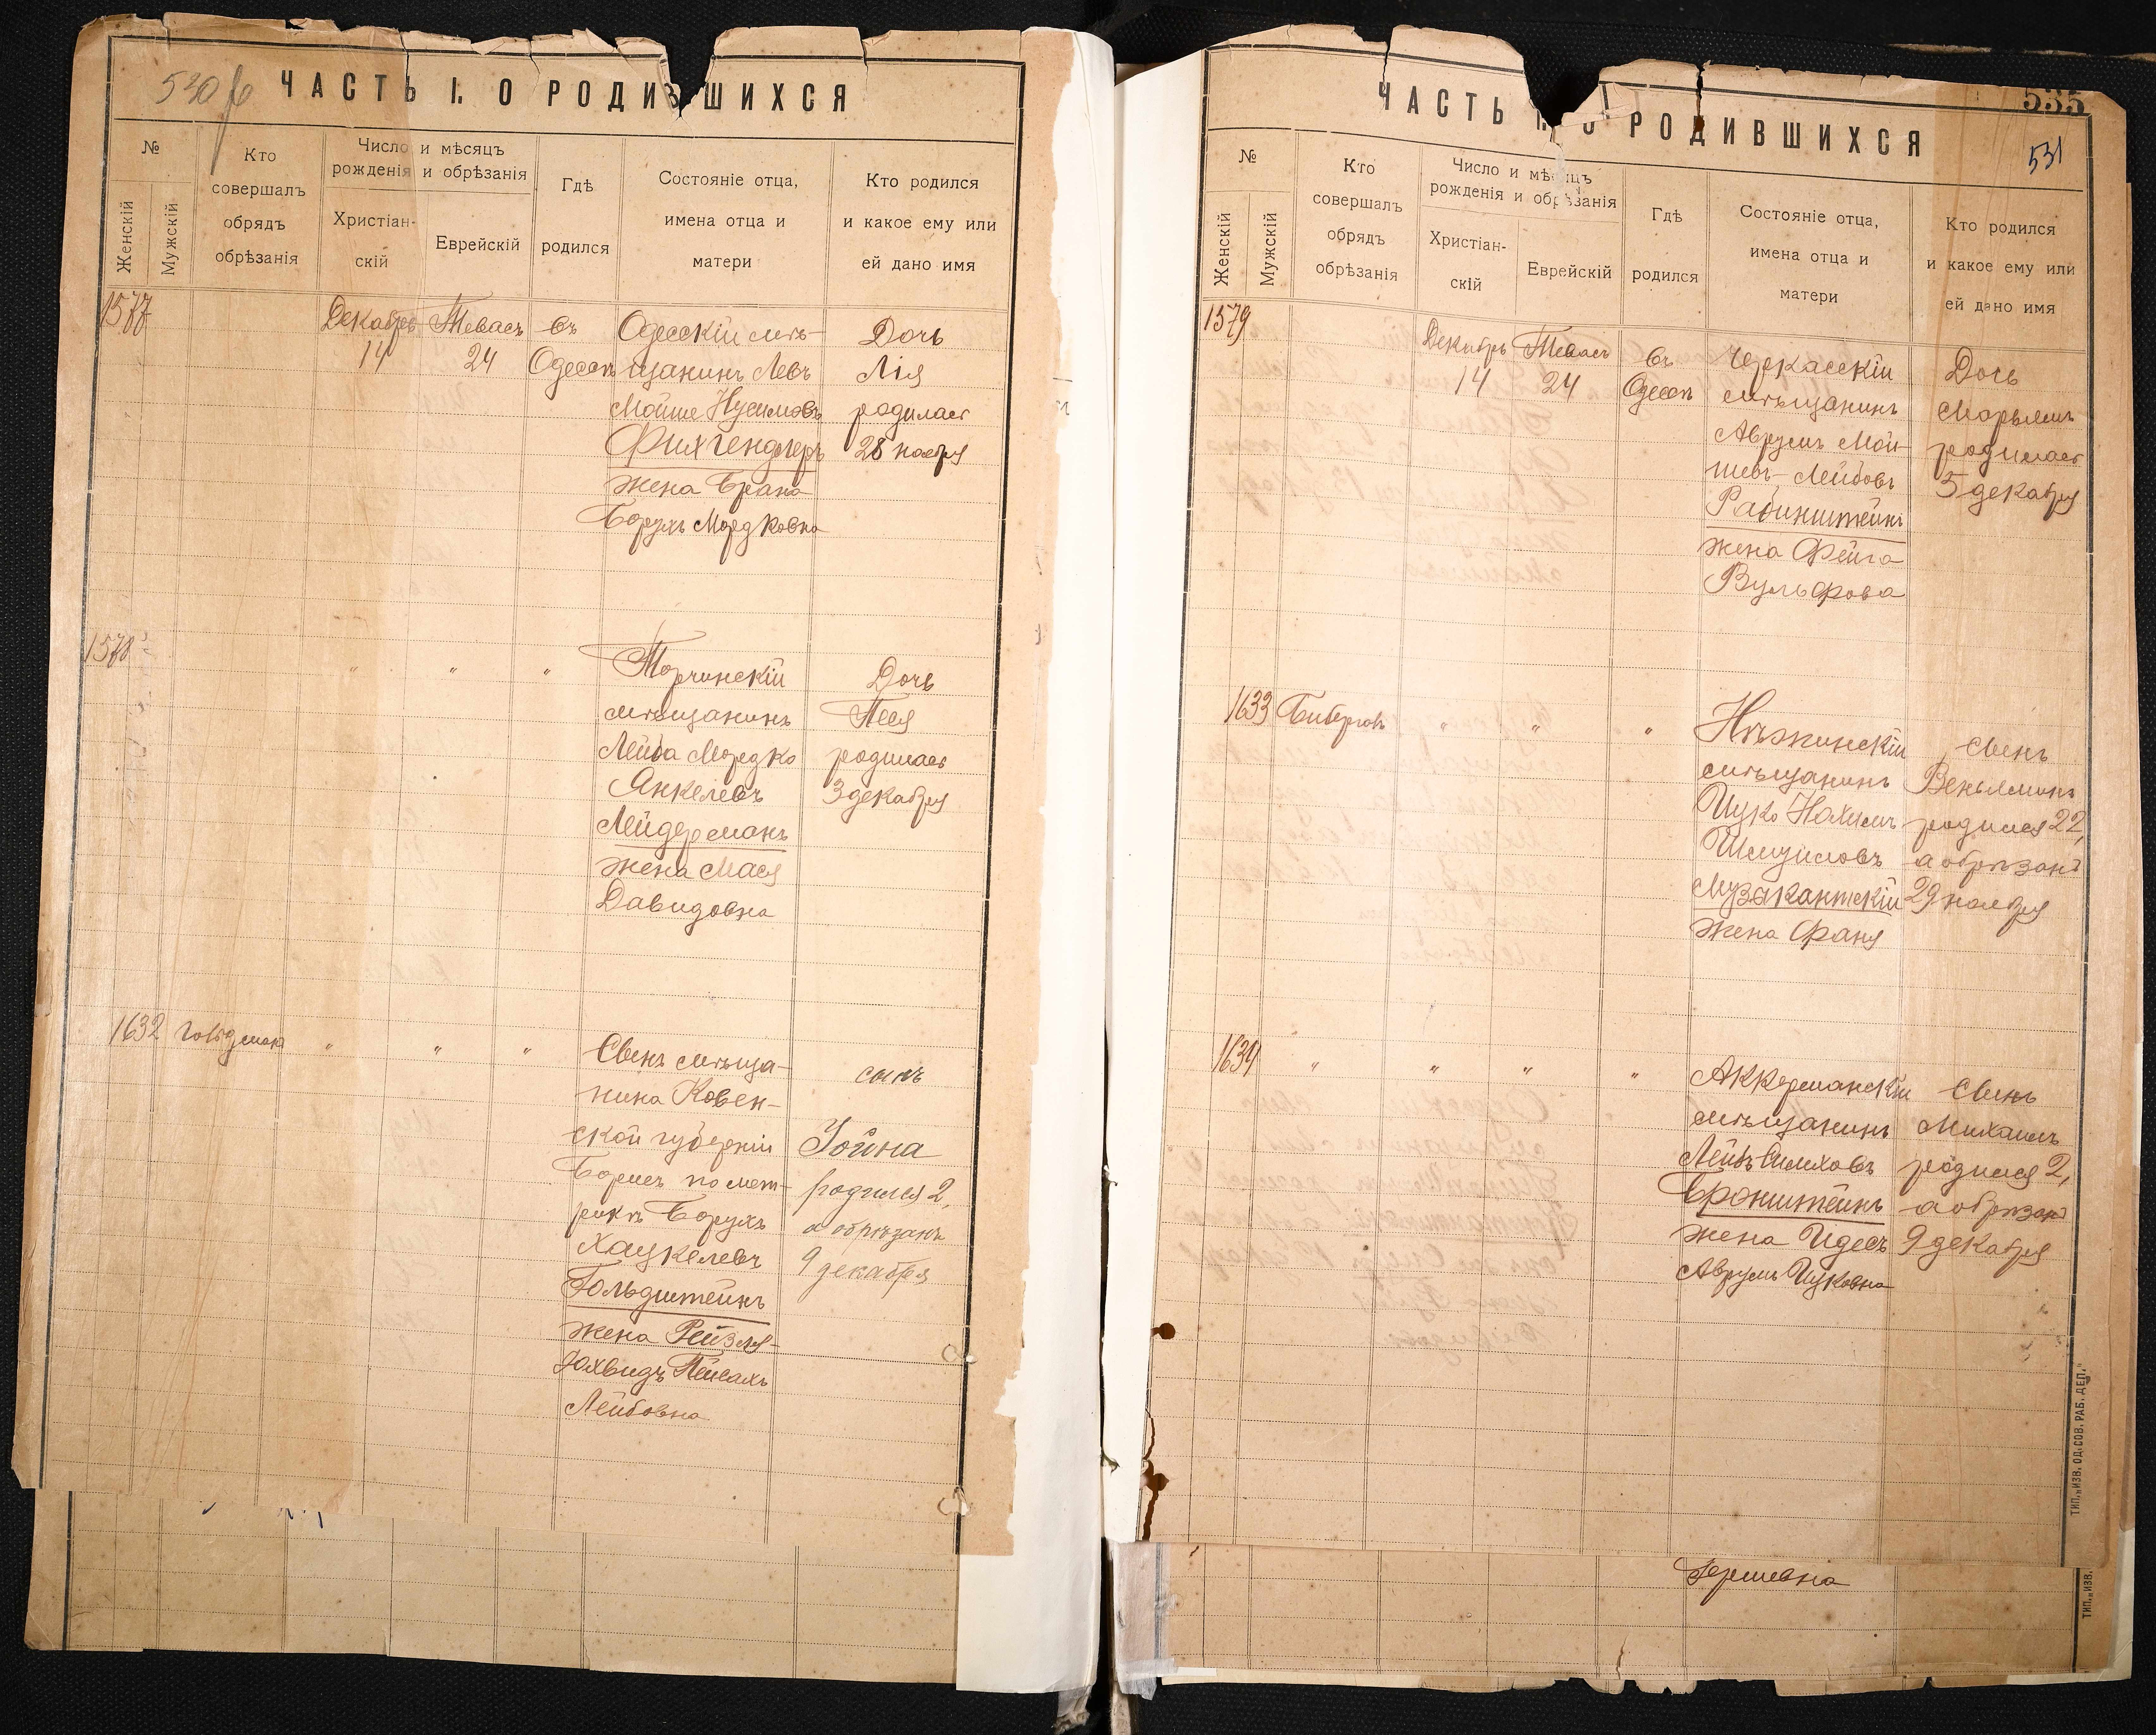 ЧАСТЬ I. О РОДИВШИХСЯ
№
Женскій
Мужскій
Кто
совершалъ
обрядъ
обрѣзанія
Число и мѣсяцъ
рожденія и обрѣзанія
Христіан-
скій
Еврейскій
Гдѣ
родился
Состояніе отца,
имена отца и
матери
Кто родился
и какое ему или
ей дано имя
1577
Декабрь
14
Тевасъ
24
въ
Одессѣ
Одесскій мѣ-
щанинъ Левъ
Мойше Нусимовъ
Фихгендлеръ
жена Брана
Борухъ Мордковна
Дочь
Лія
родилась
28 ноября
1578
" " "
Торчинскій
мѣщанинъ
Лейба Мордко
Янкелевъ
Лейдерманъ
жена Мася
Давидовна
Дочь
Песя
родилась
3 декабря
1632
Гольдманъ
" " "
Сынъ мѣща-
нина Ковен-
ской губерніи
Борисъ по мет-
рикѣ Борухъ
Хацкелевъ
Гольдштейнъ
жена Рейзля-
Іохвидъ Пейсахъ
Лейбовна
сынъ
Іойна
родился 2,
а обрѣзанъ
9 декабря
535
531
ЧАСТЬ I. О РОДИВШИХСЯ
№
Женскій
Мужскій
Кто
совершалъ
обрядъ
обрѣзанія
Число и мѣсяцъ
рожденія и обрѣзанія
Христіан-
скій
Еврейскій
Гдѣ
родился
Состояніе отца,
имена отца и
матери
Кто родился
и какое ему или
ей дано имя
1579
Декабрь
14
Тевасъ
24
въ
Одессѣ
Черкасскій
мѣщанинъ
Аврумъ Мой-
шевъ-Лейбовъ
Рабинштейнъ
жена Фейга
Вульфова
Дочь
Марьямъ
родилась
5 декабря
1633
Бибергов
" " "
Нѣжинскій
мѣщанинъ
Ицко Нахимъ
Шмуиловъ
Музыкантскій
жена Фаня
Сынъ
Веньяминъ
родился 22,
а обрѣзанъ
29 ноября
1634
" " " "
Аккерманскій
мѣщанинъ
Лейбъ Симховъ
Бронштейнъ
жена Идесъ
Аврумъ Ицковна
Сынъ
Михаилъ
родился 2,
а обрѣзанъ
9 декабря
ТИП. „ИЗВ. ОД. СОВ. РАБ. ДЕП."
Гершевна
ТИП. „ИЗВ.